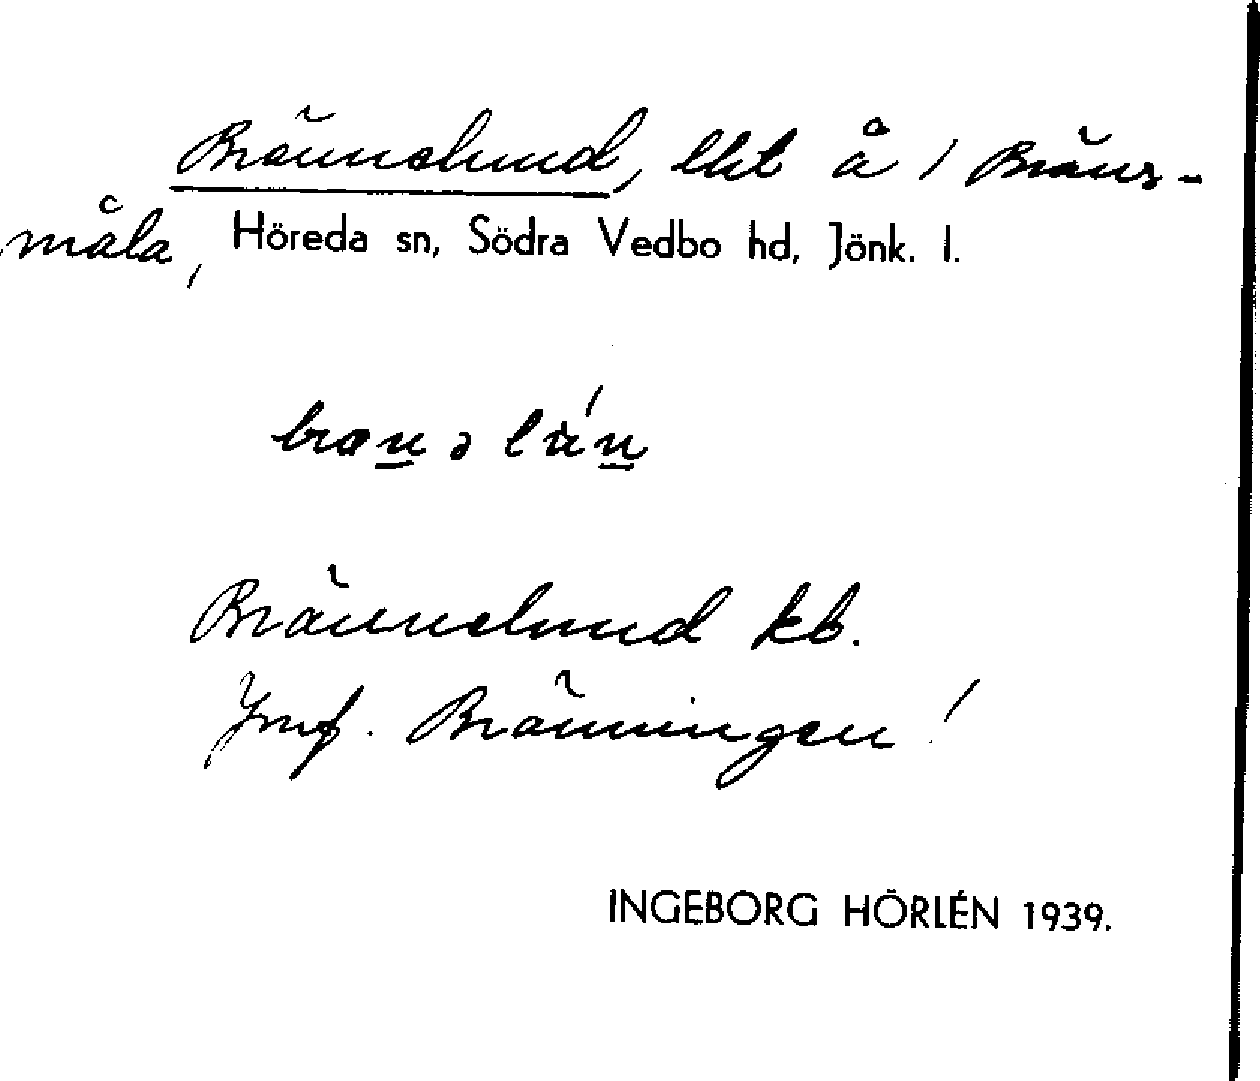 Brännelund, lht å 1 Bräns-
måla, Höreda sn, Södra Vedbo hd, Jönk. l.
Brännelund kb.
Jmf. Bränningen!
INGEBORG HÖRLÉN 1939.